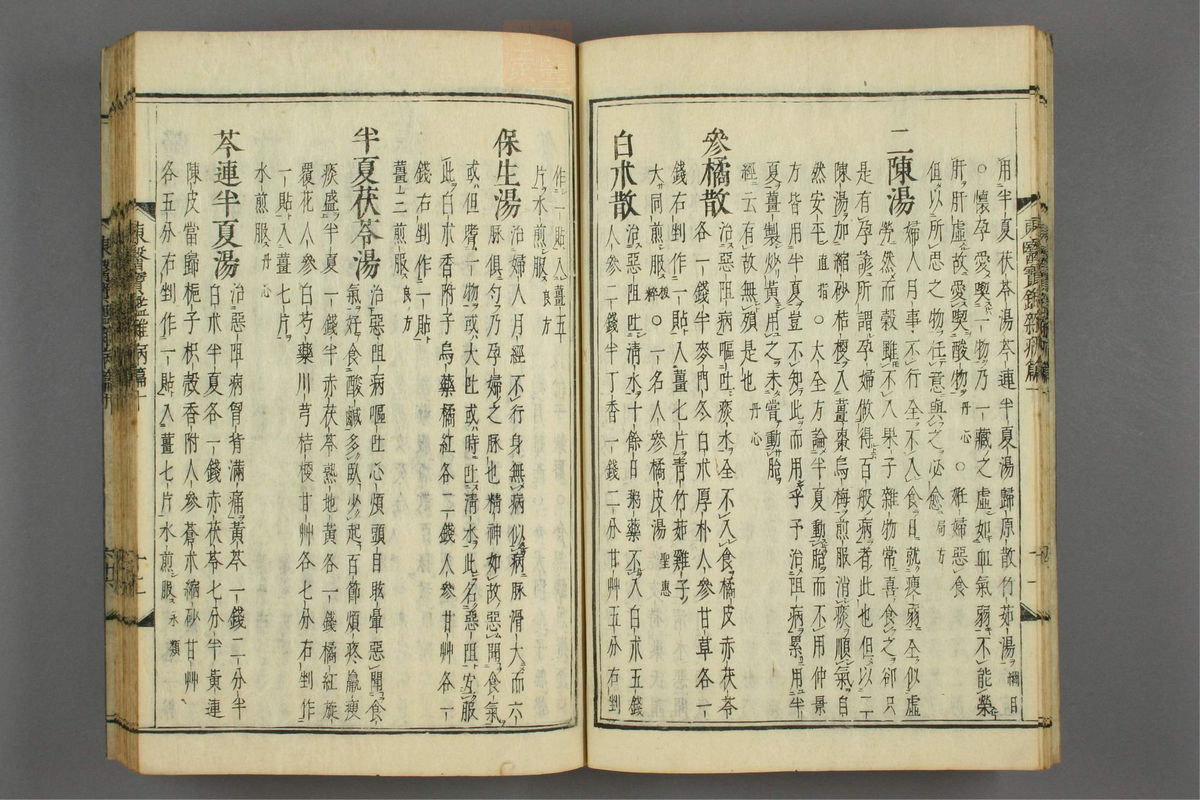 用半夏茯苓湯芩連半夏湯歸原散竹茹湯綱目
○懷孕愛喫一物乃一藏之虛如血氣弱不能榮
肝肝虛故愛喫酸物丹心○姙婦惡食
但以所思之物任意與之必愈局方
二陳湯
婦人月事不行全不入食日就瘦弱全似虛
勞然而穀雖不入果子雜物常喜食之卻只
是有孕諺所謂孕婦做得百般病者此也但以二
陳湯加縮砂桔梗入薑棗烏梅煎服消痰順氣自
然安乎直指○大全方論半夏動胎而不用仲景
方皆用半夏豈不知此而用乎予治阻病累用半
夏薑製炒黃用之未嘗動胎
經云有故無殞是也丹心
參橘散
治惡阻病嘔吐痰水全不入食橘皮赤茯苓
各一錢半麥門冬白朮厚朴人參甘草各一
錢右剉作一貼入薑七片靑竹茹雞子
大同煎服○一名人參橘皮湯聖惠
白朮散
治惡阻吐淸水十餘日粥藥不入白朮五錢
人參二錢半丁香一錢二分甘艸五分右剉
作一貼入薑五
片水煎服良方
保生湯
治婦人月經不行身無病似病脉滑大而六
脉俱勻乃孕婦之脉也精神如故惡聞食氣
或但嗜一物或大吐或時吐淸水此名惡阻宜服
此白朮香附子烏藥橘紅各二錢人參甘艸各一
錢右剉作一貼
薑三煎服良方
半夏茯苓湯
治惡阻病嘔吐心煩頭目眩暈惡聞食
氣好食酸鹹多臥少起百節煩疼羸瘦
痰盛半夏一錢半赤茯苓熟地黃各一錢橘紅旋
覆花人參白芍藥川芎桔梗甘艸各七分右剉作
一貼入薑七片
水煎服丹心
芩連半夏湯
治惡阻病胷背滿痛黃芩一錢二分半
白朮半夏各一錢赤茯苓七分半黃連
陳皮當歸梔子枳殼香附人參蒼朮縮砂甘艸
各五分右剉作一貼入薑七片水煎服永類
東醫寶鑑雜病篇十